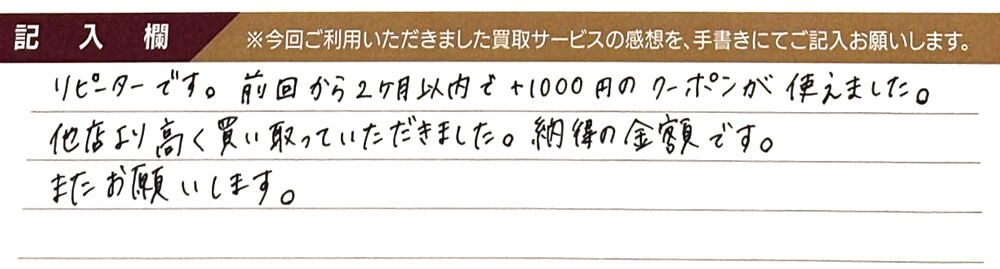 記入欄 ※今回ご利用いただきました買取サービスの感想を、手書きにてご記入お願いします。
リピーターです。前回から2ヶ月以内で+1000円のクーポンが使えました。
他店より高く買い取っていただきました。納得の金額です。
またお願いします。